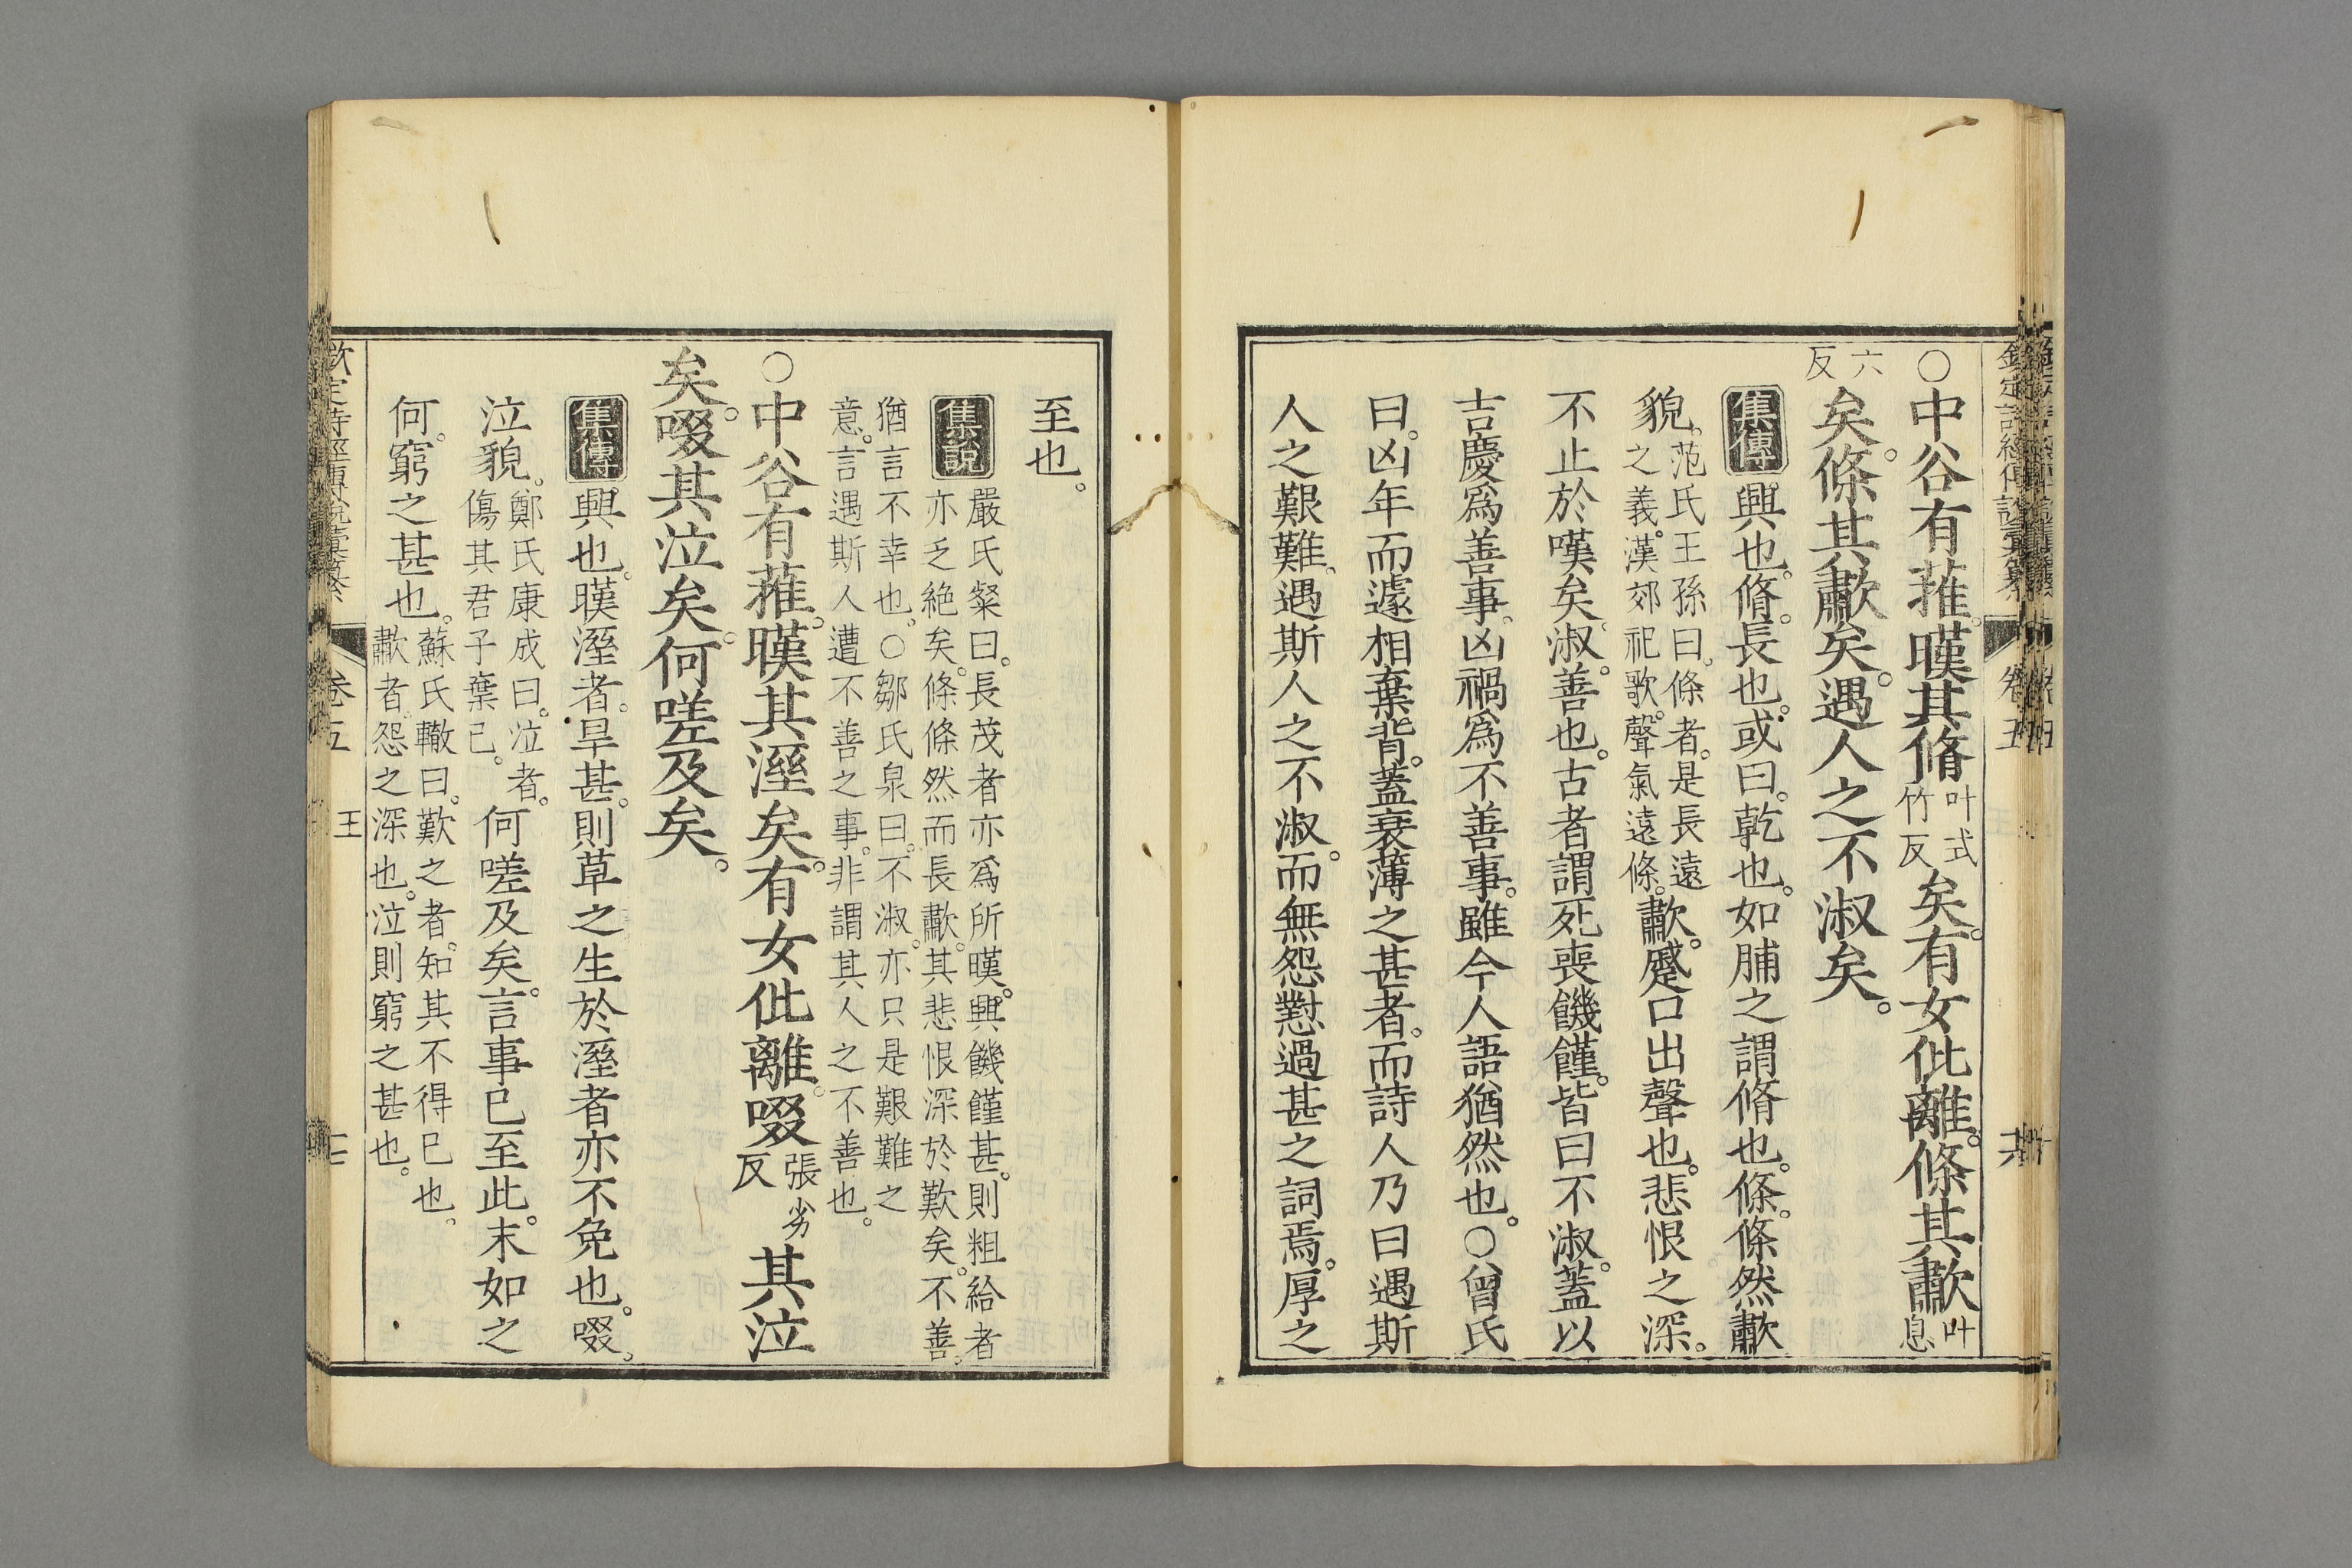 欽定詩經傳說彙纂 卷五
○中谷有蓷。暵其脩叶式竹反矣。有女仳離。條其歗叶息
六反矣。條其歗矣。遇人之不淑矣。
集傳 興也。脩。長也。或曰。乾也。如脯之謂脩也。條。條然歗
貌。范氏王孫曰。條者。是長遠之義。漢郊祀歌。聲氣遠條。歗。蹙口出聲也。悲恨之深。
不止於嘆矣。淑。善也。古者謂死喪饑饉。皆曰不淑。蓋以
吉慶爲善事。凶禍爲不善事。雖今人語猶然也。○曾氏
曰。凶年而遽相棄背。蓋衰薄之甚者。而詩人乃曰遇斯
人之艱難。遇斯人之不淑。而無怨懟過甚之詞焉。厚之
至也。
集說 嚴氏粲曰。長茂者亦爲所暵。興饑饉甚。則粗給者
亦乏絶矣。條條然而長歗。其悲恨深於歎矣。不善。
猶言不幸也。○鄒氏泉曰。不淑。亦只是艱難之
意。言遇斯人遭不善之事。非謂其人之不善也。
○中谷有蓷。暵其溼矣。有女仳離。啜張劣反其泣
矣。啜其泣矣。何嗟及矣。
集傳 興也。暵溼者。旱甚。則草之生於溼者亦不免也。啜。
泣貌。鄭氏康成曰。泣者。傷其君子棄已。何嗟及矣。言事已至此。末如之
何。窮之甚也。蘇氏轍曰。歎之者。知其不得已也。歗者怨之深也。泣則窮之甚也。
欽定詩經傳說彙纂 卷五 王